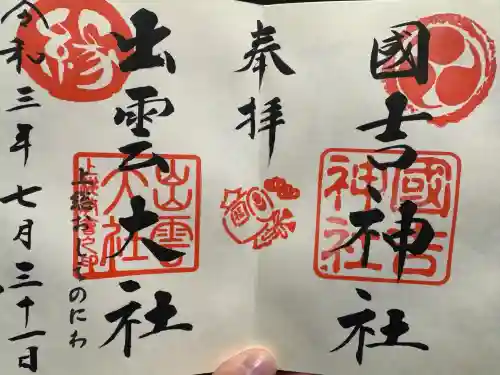 國吉神社
奉拝
出雲大社
上総おしとのにわ
令和三年七月三十一日
縁
國吉神社
出雲大社